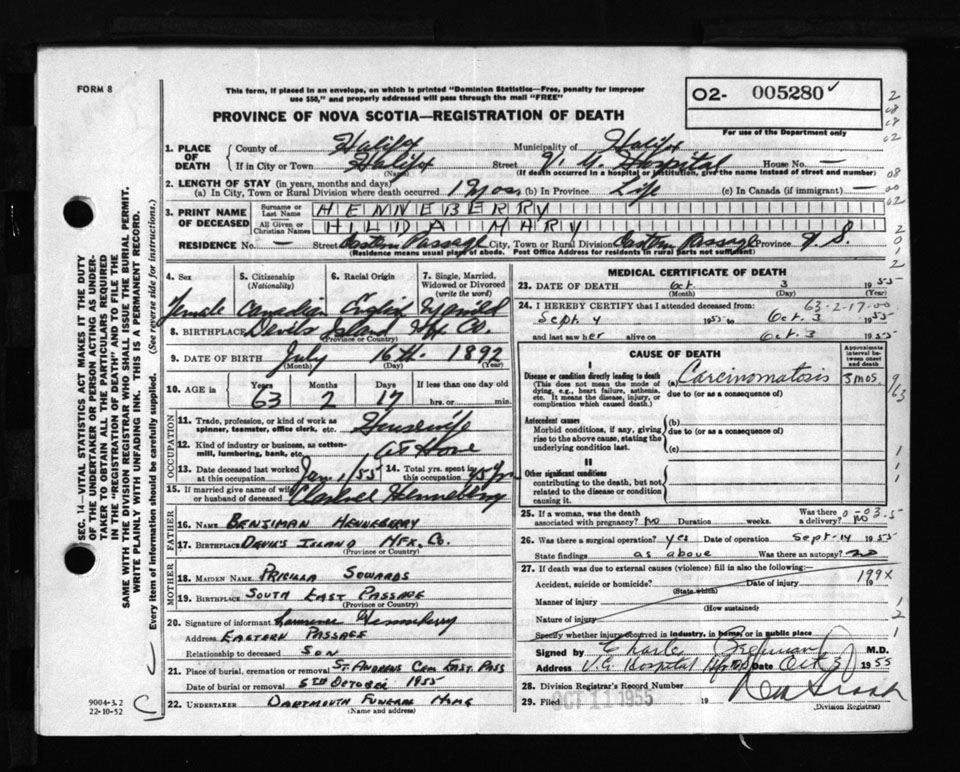 FORM 8
This form, if placed in an envelope, on which is printed "Dominion Statistics—Free, penalty for improper
use $50," and properly addressed will pass through the mail "FREE"
O2- 005280 ✓
For use of the Department only
PROVINCE OF NOVA SCOTIA—REGISTRATION OF DEATH
1. PLACE OF DEATH
County of Halifax Municipality of Halifax
If in City or Town Halifax Street V. G. Hospital House No. —
(Name) (If death occurred in a hospital or institution, give the name instead of street and number)
2. LENGTH OF STAY (in years, months and days)
(a) In City, Town or Rural Division where death occurred (b) In Province Life (c) In Canada (if immigrant) —
3. PRINT NAME OF DECEASED
Surname or Last Name HENNEBERRY
All Given or Christian Names HILDA MARY
RESIDENCE No. — Street Eastern Passage City, Town or Rural Division Eastern Passage Province N. S.
(Residence means usual place of abode. Post Office Address for residents in rural parts not sufficient)
4. Sex 5. Citizenship (Nationality) 6. Racial Origin 7. Single, Married, Widowed or Divorced (write the word)
Female Canadian English Married
8. BIRTHPLACE Devils Island Hfx Co.
(Province or Country)
9. DATE OF BIRTH July 16th. 1892
(Month) (Day) (Year)
10. AGE in Years Months Days If less than one day old
63 2 17 hrs. or min.
OCCUPATION
11. Trade, profession, or kind of work as spinner, teamster, office clerk, etc. Housewife
12. Kind of industry or business, as cotton-mill, lumbering, bank, etc. At Home
13. Date deceased last worked at this occupation Jan 1/55 14. Total yrs. spent in this occupation 45 yrs
15. If married give name of wife or husband of deceased Henneberry
FATHER
16. Name BENJIMAN HENNEBERRY
17. Birthplace DEVIL'S ISLAND HFX. CO.
(Province or Country)
MOTHER
18. Maiden Name PRICILLA SOWARDS
19. Birthplace SOUTH EAST PASSAGE
(Province or Country)
20. Signature of informant Lawrence Henneberry
Address EASTERN PASSAGE
Relationship to deceased SON
21. Place of burial, cremation or removal ST. ANDREWS CEM. EAST. PASS
Date of burial or removal 5TH OCTOBER 1955
22. UNDERTAKER DARTMOUTH FUNERAL HOME
(Name and address)
MEDICAL CERTIFICATE OF DEATH
23. DATE OF DEATH Oct 3 1955
(Month) (Day) (Year)
63-2-17-00
24. I HEREBY CERTIFY that I attended deceased from:
Sept. 4 1955 to Oct. 3 1955
and last saw her alive on Oct. 3 1955
CAUSE OF DEATH
Approximate interval between onset and death
I
Disease or condition directly leading to death
(This does not mean the mode of dying, e.g., heart failure, asthenia, etc. It means the disease, injury, or complication which caused death.)
(a) Carcinomatosis 3 mos.
due to (or as a consequence of)
Antecedent causes
Morbid conditions, if any, giving rise to the above cause, stating the underlying condition last.
(b)
due to (or as a consequence of)
(c)
II
Other significant conditions
contributing to the death, but not related to the disease or condition causing it.
25. If a woman, was the death associated with pregnancy? No Duration weeks. Was there a delivery? No
26. Was there surgical operation? yes Date of operation Sept. 14 1955
State findings as above Was there an autopsy? no
27. If death was due to external causes (violence) fill in also the following:—
199X
Accident, suicide or homicide? Date of injury 19
(State which)
Manner of injury
(How sustained)
Nature of injury
Specify whether injury occurred in industry, in home, or in public place
Signed by Charles M.D.
Address V.G. Hospital Date Oct 3 1955
28. Division Registrar's Record Number
29. Filed OCT 11 1955 19
(Division Registrar)
SEC. 14—VITAL STATISTICS ACT MAKES IT THE DUTY
OF THE UNDERTAKER OR PERSON ACTING AS UNDER-
TAKER TO OBTAIN ALL THE PARTICULARS REQUIRED
IN THE "REGISTRATION OF DEATH" AND TO FILE THE
SAME WITH THE DIVISION REGISTRAR WHO SHALL ISSUE THE BURIAL PERMIT.
WRITE PLAINLY WITH UNFADING INK. THIS IS A PERMANENT RECORD.
Every item of information should be carefully supplied. (See reverse side for instructions.)
9004-3.2
22-10-52
C